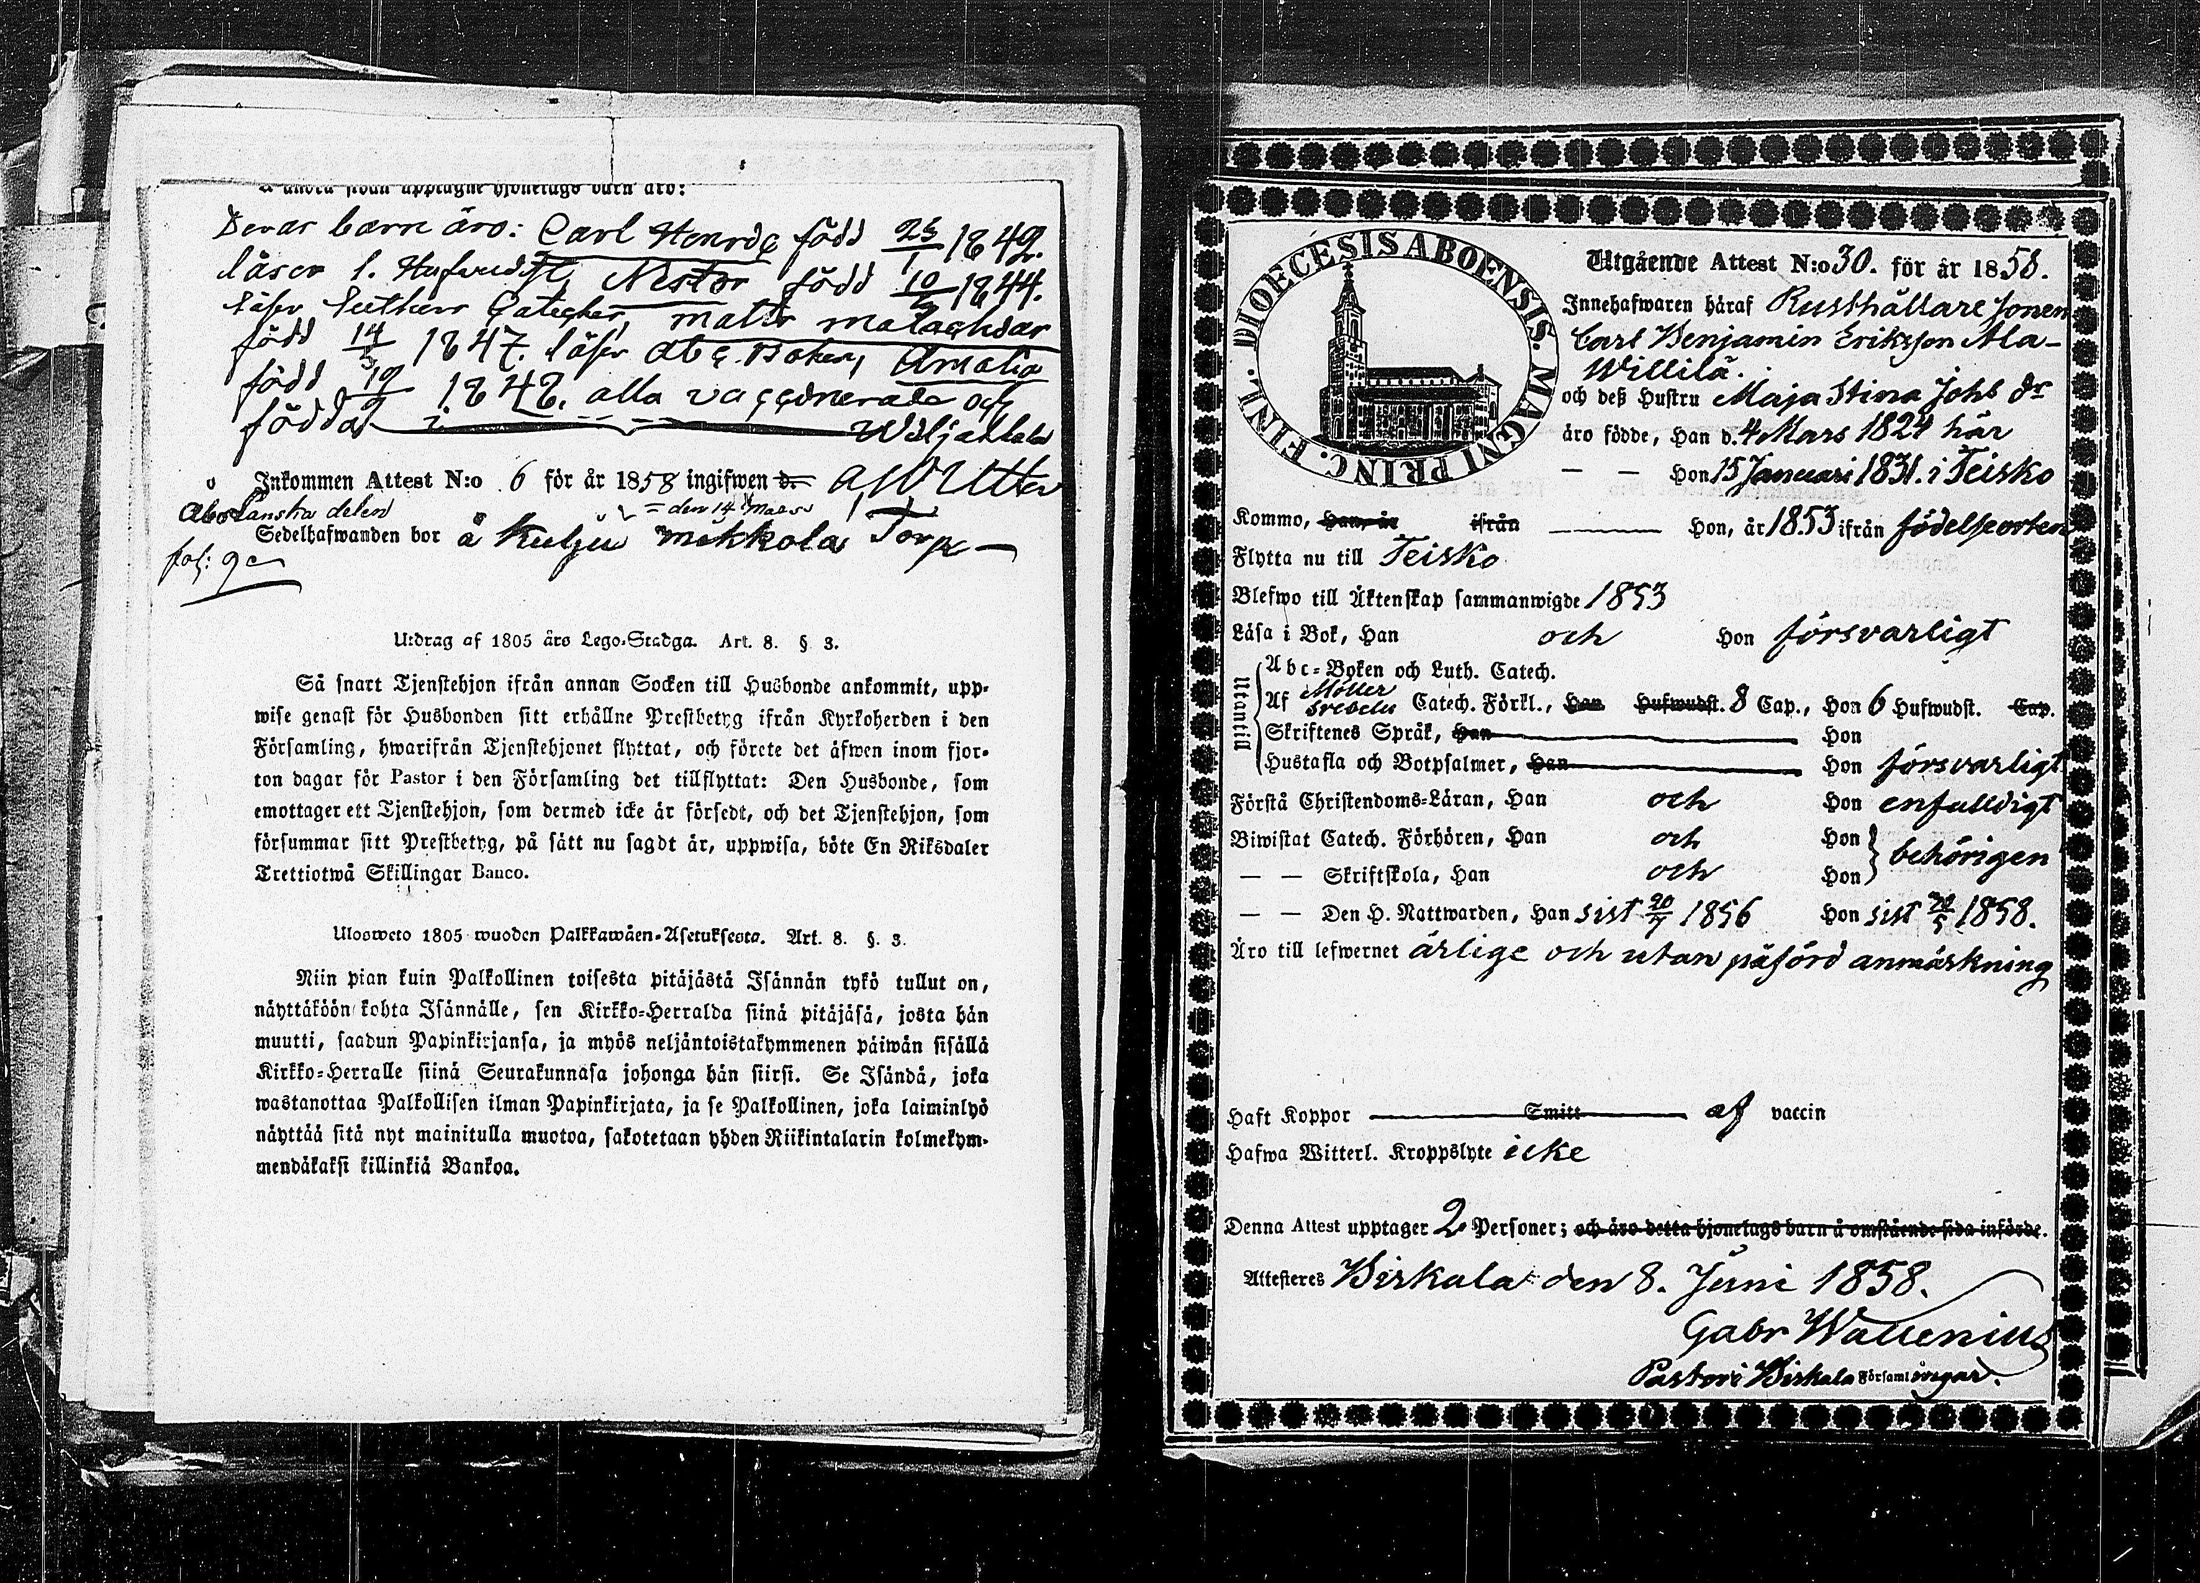 å andra sidan upptagne hjonelags barn äro:
Deras barn äro: Carl Henric född 25/1 1842.
läser l. Hufvudst, Nestor född 10/2 1844.
läser Lutheri Cateches, född
född 14/5 1847. läser abc Boken, Amalia
född 19/9 1848. alla vaccinerade och
födda i
Inkommen Attest N:o 6 för år 1858 ingifwen d.
Åbo Länska delen = den 14 Mars
Sedelhafwanden bor å Kulju mikkola Torp
fol: 90
Utdrag af 1805 års Lego-Stadga. Art. 8. § 3.
Så snart Tjenstehjon ifrån annan Socken till Husbonde ankommit, upp-
wise genast för Husbonden sitt erhållne Prestbetyg ifrån Kyrkoherden i den
Församling, hwarifrån Tjenstehjonet flyttat, och förete det äfwen inom fjor-
ton dagar för Pastor i den Församling det tillflyttat: Den Husbonde, som
emottager ett Tjenstehjon, som dermed icke är försedt, och det Tjenstehjon, som
försummar sitt Prestbetyg, på sätt nu sagdt är, uppwisa, böte En Riksdaler
Trettiotwå Skillingar Banco.
Ulosweto 1805 wuoden Palkkawäen-Asetuksesta. Art. 8. §. 3.
Niin pian kuin Palkollinen toisesta pitäjästä Isännän tykö tullut on,
näyttäköön kohta Isännälle, sen Kirkko-Herralda siinä pitäjäsä, josta hän
muutti, saadun Papinkirjansa, ja myös neljäntoistakymmenen päiwän sisällä
Kirkko-Herralle siinä Seurakunnasa johonga hän siirsi. Se Isändä, joka
wastanottaa Palkollisen ilman Papinkirjata, ja se Palkollinen, joka laiminlyö
näyttää sitä nyt mainitulla muotoa, sakotetaan yhden Riikintalarin kolmekym-
mendäkaksi killinkiä Bankoa.
DIOECESIS ABOENSIS. MAGNI PRINC. FINL.
Utgående Attest N:o 30. för år 1858.
Innehafwaren häraf Rusthållare Sonen
Carl Benjamin Eriksson Ala-
Willilä.
och deß Hustru Maja Stina Johs dr
äro födde, Han d. 4 Mars 1824 här
— — Hon 15 Januari 1831. i Teisko
Kommo, Han, år ifrån Hon, år 1853 ifrån födelseorten
Flytta nu till Teisko
Blefwo till Äktenskap sammanwigde 1853
Läsa i Bok, Han och Hon försvarligt
Utantill
Abc-Boken och Luth. Catech.
Af Möller Svebelii Catech. Förkl., Han Hufwudst. 8 Cap., Hon 6 Hufwudst. Cap.
Skriftenes Språk, Han Hon
Hustafla och Botpsalmer, Han Hon försvarligt
Förstå Christendoms-Läran, Han och Hon enfalldigt
Biwistat Catech. Förhören, Han och Hon behörigen
— — Skriftskola, Han och Hon
— — Den H. Nattwarden, Han sist 20/7 1856 Hon sist 20/5 1858.
Äro till lefwernet ärlige och utan påförd anmärkning
Haft Koppor Smitt af vaccin
Hafwa Witterl. Kroppslyte icke
Denna Attest upptager 2 Personer; och äro detta hjonelags barn å omstående sida införde.
Attesteres Birkala den 8. Juni 1858.
Gabr Wallenius
Pastor i Birkala Församlingar.